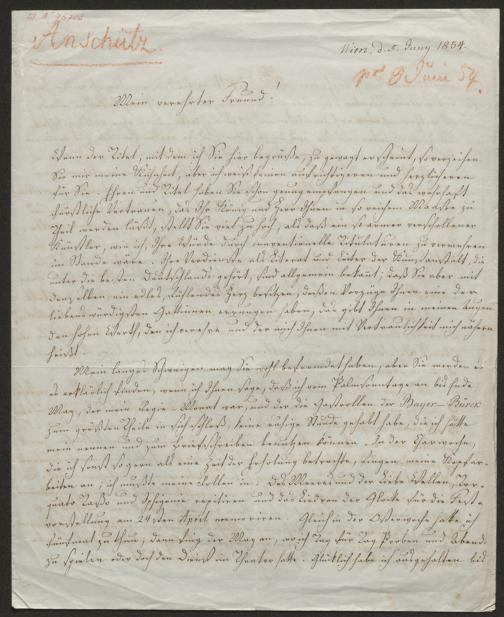 Anschütz.
Wien, d. 5. Juny 1854.
8 Juni 54.
Mein verehrter Freund!
Wenn der Titel, mit dem ich Sie hier begrüße, zu gewagt erscheint, so verzeihen
Sie mir meine Kühnheit, aber ich weiß keinen aufrichtigeren und herzlicheren
für Sie. Ehren und Titel haben Sie schon genug empfangen und das wahrhaft
fürstliche Vertrauen, das Ihr König und Herr Ihnen in so reichem Maaße zu
Theil werden läßt, stellt Sie viel zu hoch, als daß ein so armer verschollener
Künstler, wie ich, Ihre Würde durch conventionelle Titulaturen zu vermehren
im Stande wäre. Ihre Verdienste als Literat und Leiter der Kunstanstalt, die
unter die besten Deutschlands gehört, sind allgemein bekannt; daß Sie aber mit
denselben ein edles, fühlendes Herz besitzen, dessen Vorzüge Ihnen eine der
liebenswürdigsten Gattinnen errungen haben, das gibt Ihnen in meinen Augen
den hohen Werth, den ich verehre und der mich Ihnen mit Vertraulichkeit mich nähern
heißt.
Mein langes Schweigen mag Sie wohl befremdet haben, aber Sie werden
es erklärlich finden, wenn ich Ihnen sage, daß ich vom Palmsonntage an bis Ende
May, der mein Regie-Monat war und der die Gastrollen der Bayer-Bürck
zum größten Theile in sich schloß, keine ruhige Stunde gehabt habe, die ich hätte
mein nennen und zum Briefschreiben benutzen können. In der Charwoche,
die ich sonst so gern als eine Zeit der Erholung betrachte, gingen meine Kopfar-
beiten an; ich mußte meine Rollen in: Des Meeres und der Liebe Wellen, Tor-
quato Tasso und Iphigenie repetiren und das Lied von der Glocke für die Fest-
vorstellung am 24sten April memoriren. Gleich in der Osterwoche hatte ich
fünfmal zu thun; dann fing der May an, wo ich Tag für Tag Proben und Abends
zu spielen oder doch den Dienst im Theater hatte. Glücklich habe ich ausgehalten bis